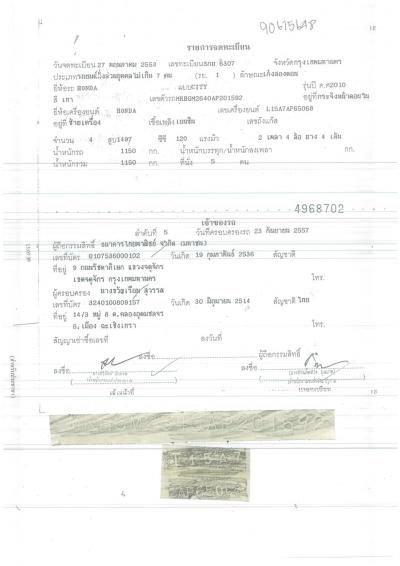 90675698
12
รายการจดทะเบียน
วันจดทะเบียน 27 พฤษภาคม 2553 เลขทะเบียน 6307 จังหวัดกรุงเทพมหานคร
ประเภทรถยนต์นั่งส่วนบุคคลไม่เกิน 7 คน (รย. 1 ) ลักษณะเก๋งสองตอน
ยี่ห้อรถ HONDA แบบCITY รุ่นปี ค.ศ2010
สี เทา เลขตัวรถMRHGM2640AP201592 อยู่ที่
ยี่ห้อเครื่องยนต์ HONDA เลขเครื่องยนต์ L15A7AP65068
อยู่ที่ เชื้อเพลิง เบนซิน เลขถังแก๊ส
จำนวน 4 สูบ1497 ซีซี 120 แรงม้า 2 เพลา 4 ล้อ ยาง 4 เส้น
น้ำหนักรถ 1150 กก. น้ำหนักบรรทุก/น้ำหนักลงเพลา กก.
น้ำหนักรวม 1150 กก. ที่นั่ง 5 คน
4968702
เจ้าของรถ
ลำดับที่ 5 วันที่ครอบครองรถ 23 กันยายน 2557
ผู้ถือกรรมสิทธิ์ ธนาคารไทยพาณิชย์ จำกัด (มหาชน)
เลขที่บัตร 0107536000102 วันเกิด 19 กุมภาพันธ์ 2536 สัญชาติ
ที่อยู่ 9 ถนนรัชดาภิเษก แขวงจตุจักร
เขตจตุจักร กรุงเทพมหานคร โทร.
ผู้ครอบครอง
เลขที่บัตร 3240100809157 วันเกิด 30 มิถุนายน 2514 สัญชาติ ไทย
ที่อยู่ 14/3 หมู่ 8 ต.คลองอุดมชลจร
อ.เมือง ฉะเชิงเทรา โทร.
สัญญาเช่าซื้อเลขที่ ลงวันที่
ผู้ถือกรรมสิทธิ์
ลงชื่อ ลงชื่อ
เจ้าหน้าที่ นายทะเบียน
13
4